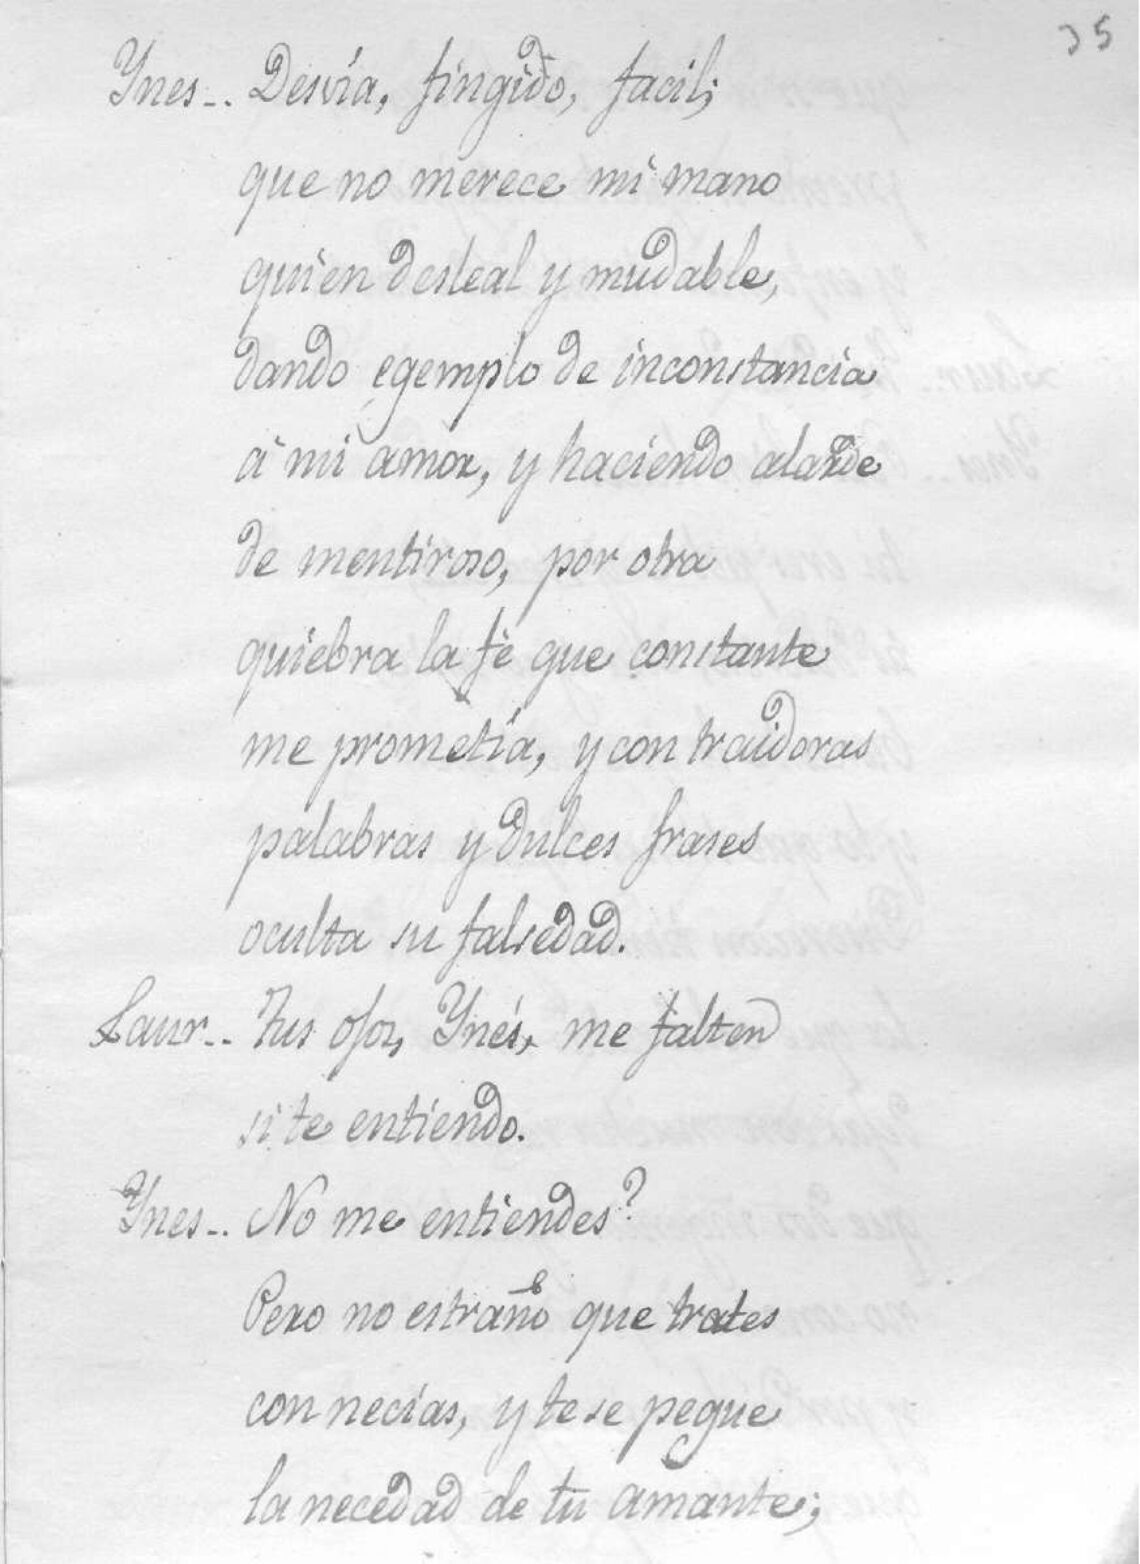 35
Ynes-- Desvía, fingido, facil;
que no merece mi mano
quien desleal y mudable,
dando egemplo de inconstancia
á mi amor, y haciendo alarde
de mentiroso, por otra
quiebra la fé que constante
me prometía, y con traidoras
palabras y dulces frases
oculta su falsedad.
Laur-- Tus ojos, Ynés, me falten
si te entiendo.
Ynes-- No me entiendes?
Pero no estraño que trates
con necias, y te se pegue
la necedad de tu amante;